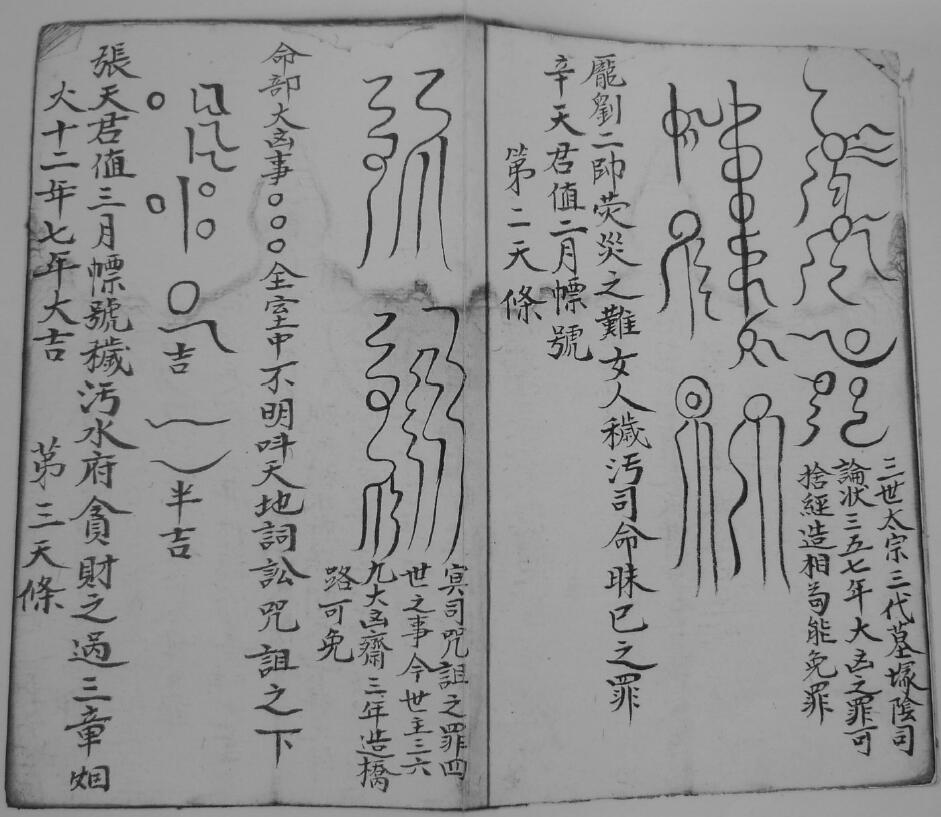 三世太宗三代墓塚陰司
論状三五七年大凶之罪可
捨經造相茍能免罪
龐劉二帥熒災之難女人穢污司命昧已之罪
辛天君值二月幖號
第二天條
冥司咒詛之罪四
世之事今世主三六
九大凶齋三年造橋
路可免
命部大凶事〇〇〇全室中不明呌天地詞訟咒詛之下
吉
半吉
張天君值三月幖號穢污水府貪財之過三章姻
火十二年七年大吉
第三天條